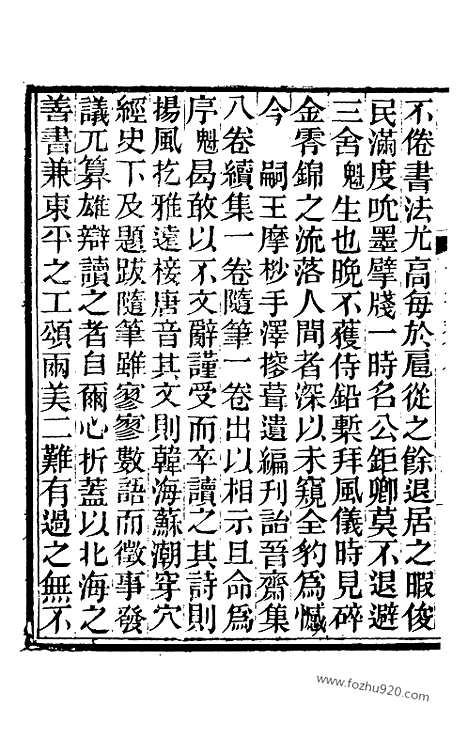 不倦書法尤高每於扈從之餘退居之暇俊
民滿度吮墨擘牋一時名公鉅卿莫不退避
三舍魁生也晚不獲侍鉛槧拜風儀時見碎
金零錦之流落人間者深以未窺全豹爲憾
今　嗣王摩挱手澤葺遺編刊詒晉齋集
八卷續集一卷隨筆一卷出以相示且命爲
序魁曷敢以不文辭謹受而卒讀之其詩則
揚風扢雅遠接唐音其文則韓海蘇潮穿穴
經史下及題跋隨筆雖寥寥數語而徵事發
議兀算雄辯讀之者自爾心折蓋以北海之
善書兼東平之工頌兩美二難有過之無不
www.fozhu920.com